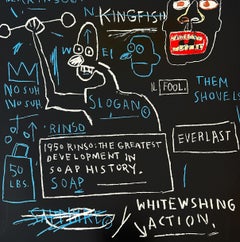 KINGFISH
W E I
IL FOOL.
THEM
SHOVELS
NO SUH
NO SUH
SLOGAN©
RINSO
1950 RINSO: THE GREATEST
DEVELOPMENT IN
SOAP HISTORY.
SOAP
EVERLAST
50
LBS.
WHITEWSHING
ACTION.